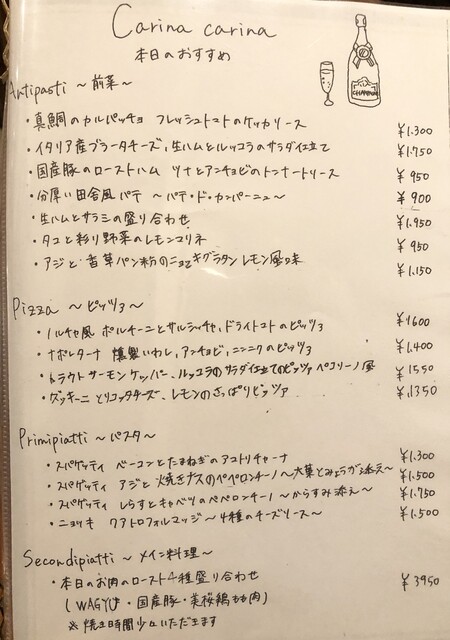 Carina carina
本日のおすすめ
CHAMPAGNE
Antipasti ～前菜～
・真鯛のカルパッチョ フレッシュトマトのケッカソース ¥1.300
・イタリア産ブラータチーズ,生ハムとルッコラのサラダ仕立て ¥1.750
・国産豚のローストハム ツナとアンチョビのトンナートソース ¥950
・分厚い田舎風パテ ～パテ・ド・カンパーニュ～ ¥900
・生ハムとサラミの盛り合わせ ¥1.950
・タコと彩り野菜のレモンマリネ ¥950
・アジと香草パン粉の グラタン レモン風味 ¥1.150
Pizza ～ピッツァ～
・ノルチャ風 ポルチーニとサルシッチャ,ドライトマトのピッツァ ¥1600
・ナポレターナ 燻製いわし,アンチョビ,ニンニクのピッツァ ¥1.400
・トラウトサーモン ケッパー、ルッコラのサラダ仕立てのピッツァ ペコリーノ風 ¥1550
・ズッキーニ とリコッタチーズ、レモンのさっぱりピッツァ ¥1.350
Primipiatti ～パスタ～
・スパゲッティ ベーコンとたまねぎのアマトリチャーナ ¥1.300
・スパゲッティ アジと焼きナスのペペロンチーノ～大葉とみょうが添え～ ¥1.500
・スパゲッティ しらすとキャベツのペペロンチーノ ～からすみ添え～ ¥1.750
・ニョッキ クアトロフォルマッジ～4種のチーズソース～ ¥1.500
Secondipiatti ～メイン料理～
・本日のお肉のロースト4種盛り合わせ ¥3950
(WAGYU・国産豚・美桜鶏もも肉)
※焼き時間少々いただきます